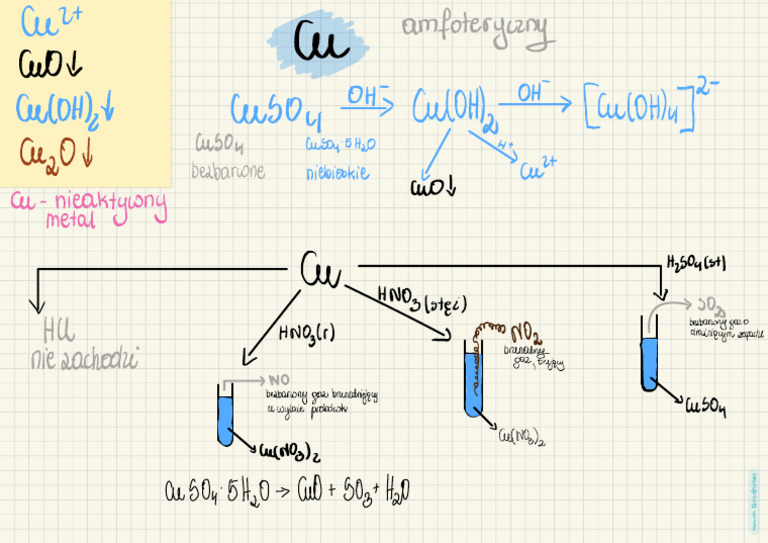 Cu²⁺
CuO↓
Cu(OH)₂↓
Cu₂O↓
Cu - nieaktywny
metal
Cu
amfoteryczny
CuSO₄ OH⁻ → Cu(OH)₂ OH⁻ → [Cu(OH)₄]²⁻
CuSO₄
bezbarwne
CuSO₄·5H₂O
niebieskie
CuO↓
H⁺
Cu²⁺
Cu
HCl
nie zachodzi
HNO₃(r)
NO
bezbarwny gaz brunatniejący
u wylotu probówki
Cu(NO₃)₂
HNO₃(stęż)
NO₂
brunatny
gaz, żrący
Cu(NO₃)₂
H₂SO₄(st)
SO₂
bezbarwny gaz o
duszącym zapachu
CuSO₄
CuSO₄·5H₂O → CuO + SO₃ + H₂O